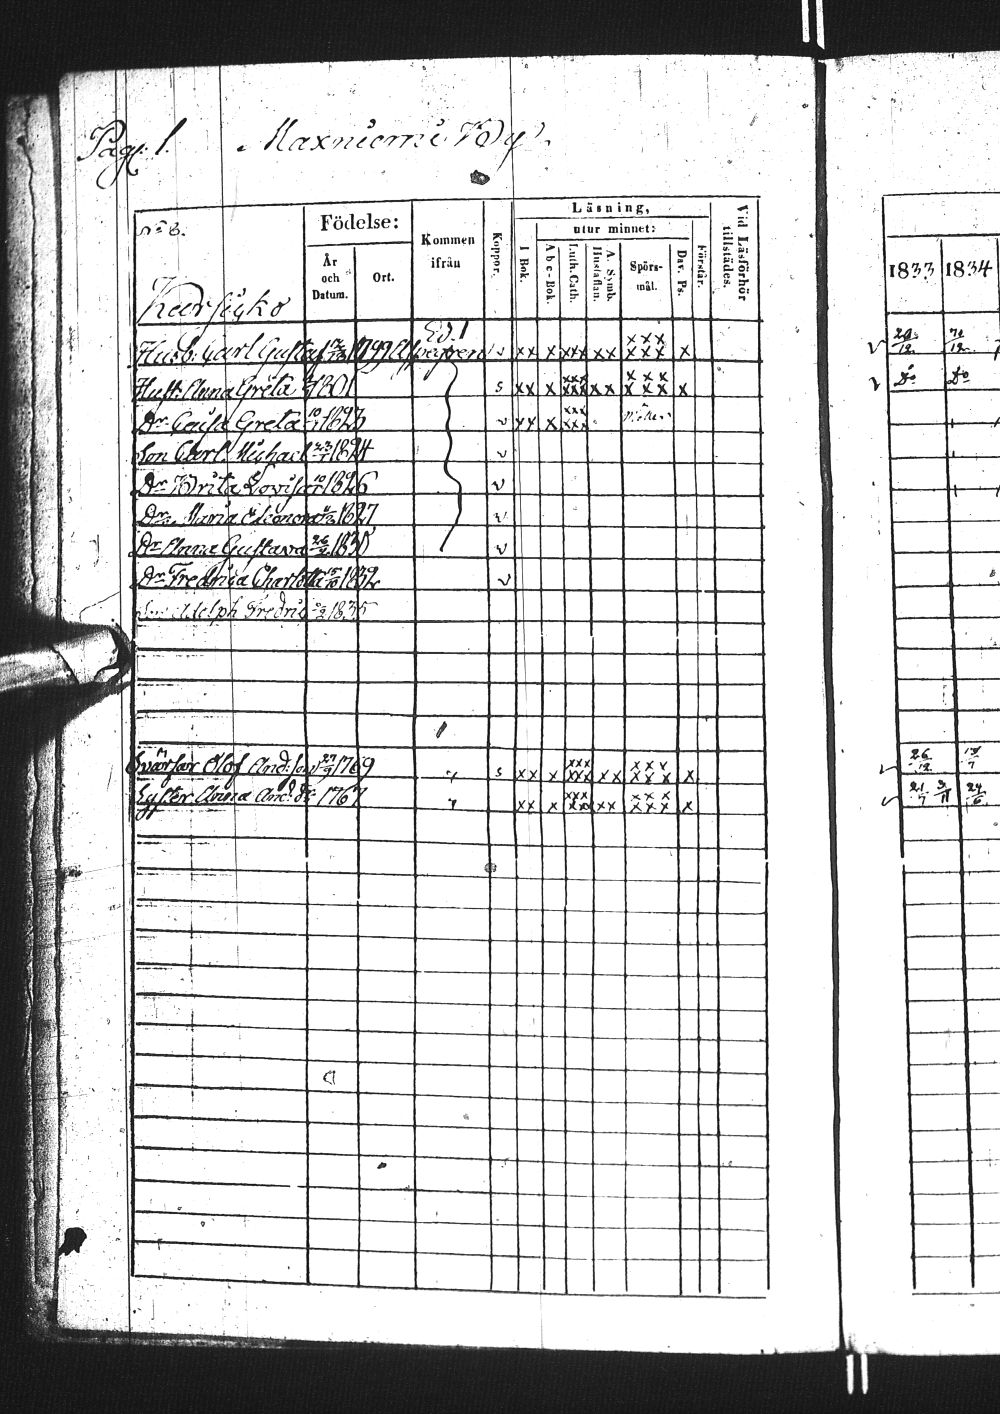 Pag. 1. Maxniemi By
No 3.
Karsicko
Födelse:
År och Datum.
Ort.
Kommen ifrån
Koppor.
Läsning,
utur minnet:
I Bok.
Abc-Bok.
Luth. Cath.
Hustaflan.
A. Symb.
Spörs-mål.
Dav. Ps.
Förstår.
Vid Läsförhör tillstädes.
1833 1834
Husb. Carl Gustaf 1799 v xx x xxx xx xxx xxx x
Hust. Anna Greta 1801 s xx x xxx xxx xx xxx xxx x
Dr Caisa Greta 1823 v xx x xxx xxx
Son Carl Michael 23/1 1824 v
Dr Brita Lovisa 1826 v
Dr Maria Eleonora 1827 v
Dr Anna Gustava 1830 v
Dr Fredrica Charlotta 15/10 1832 v
Son Adolph Fredric 1835
Svärfar Olof And:son 27/9 1769 s xx x xxx xxx xx xxx xxx x
Syster Anna And:dr 1767 xx x xxx xxx xx xxx xxx x
20/12
Do Do
26/12
21/7